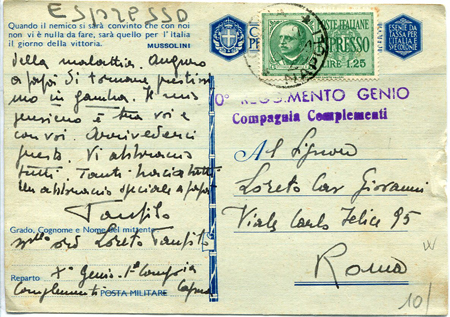 Espresso
Quando il nemico si sarà convinto che con noi
non vi è nulla da fare, sarà quello per l'Italia
il giorno della vittoria. MUSSOLINI
della malattia. Auguro
a papà di tornare prestissi
mo in gamba. Il mio
pensiero è tra voi e
con voi. Arrivederci
presto. Vi abbraccio
tutti. Tanti baci a tutti
un abbraccio speciale a papà
Tanfilo
Grado, Cognome e Nome del mittente
Loreto Tanfilo
Reparto X° Genio - 1ª Compagnia
Complementi Capua
POSTA MILITARE
POSTE ITALIANE
ESPRESSO
LIRE 1.25
NAPOLI
ESENTE DA
TASSA PER
L'ITALIA E
0° REGGIMENTO GENIO
Compagnia Complementi
Al Signor
Loreto Cav Giovanni
Viale Carlo Felice 95
Roma
10/